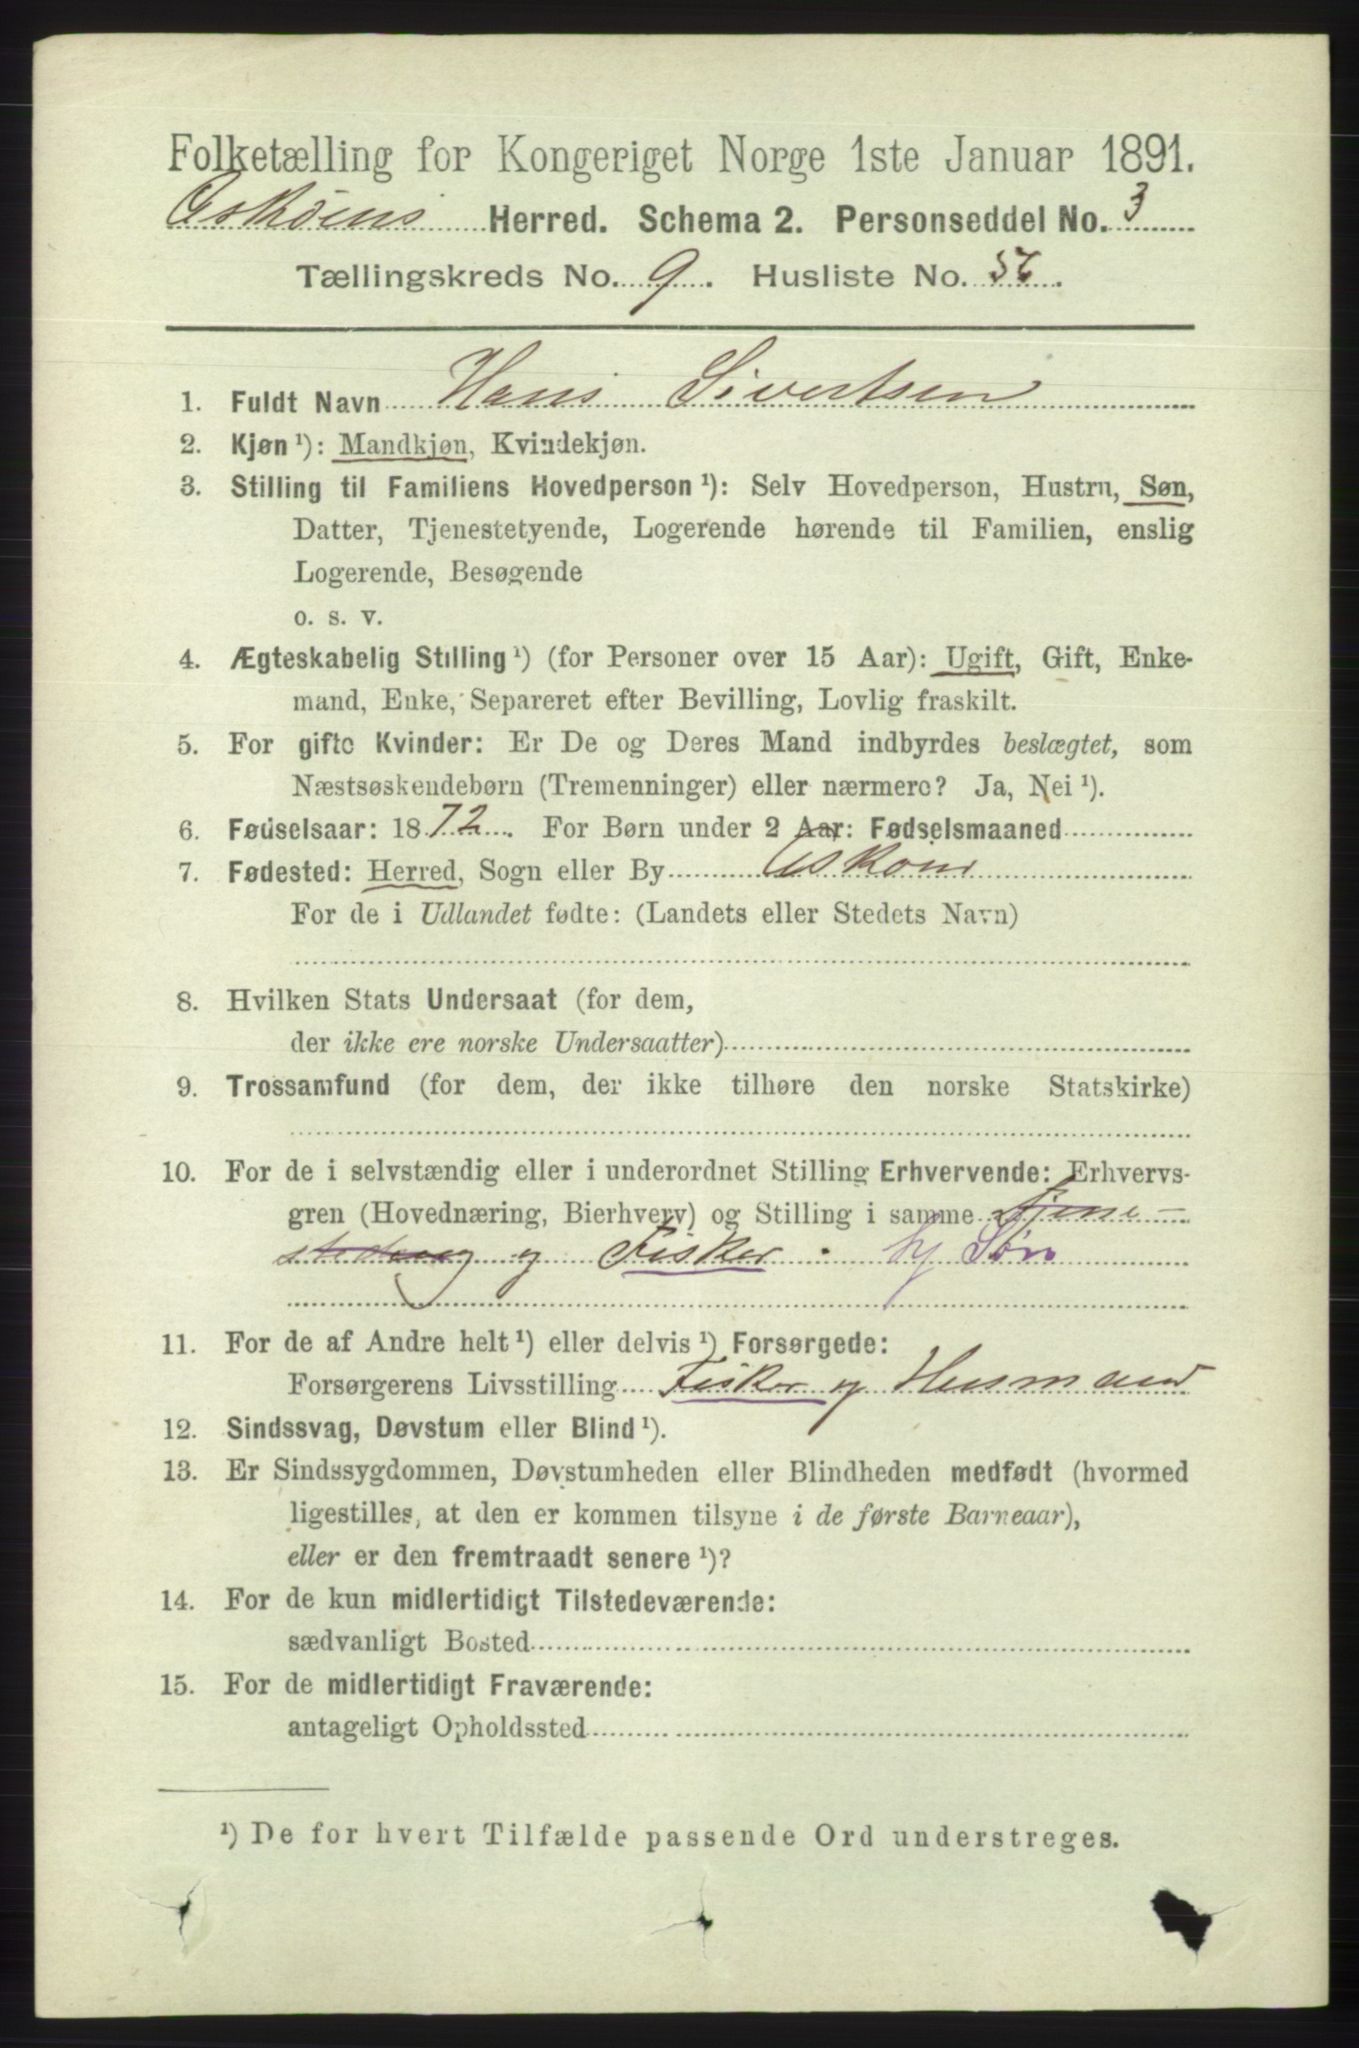 Folketælling for Kongeriget Norge 1ste Januar 1891.
Askøens Herred. Schema 2. Personseddel No. 3
Tællingskreds No. 9. Husliste No. 56.
1. Fuldt Navn Hans Sivertsen
2. Kjøn ¹): Mandkjøn, Kvindekjøn.
3. Stilling til Familiens Hovedperson ¹): Selv Hovedperson, Hustru, Søn,
Datter, Tjenestetyende, Logerende hørende til Familien, enslig
Logerende, Besøgende
o. s. v.
4. Ægteskabelig Stilling ¹) (for Personer over 15 Aar): Ugift, Gift, Enke-
mand, Enke, Separeret efter Bevilling, Lovlig fraskilt.
5. For gifte Kvinder: Er De og Deres Mand indbyrdes beslægtet, som
Næstsøskendebørn (Tremenninger) eller nærmere? Ja, Nei ¹).
6. Fødselsaar: 1872. For Børn under 2 Aar: Fødselsmaaned
7. Fødested: Herred, Sogn eller By Askøens
For de i Udlandet fødte: (Landets eller Stedets Navn)
8. Hvilken Stats Undersaat (for dem,
der ikke ere norske Undersaatter)
9. Trossamfund (for dem, der ikke tilhøre den norske Statskirke)
10. For de i selvstændig eller i underordnet Stilling Erhvervende: Erhvervs-
gren (Hovednæring, Bierhverv) og Stilling i samme Tjene-
og Fisker . hj Søn
11. For de af Andre helt ¹) eller delvis ¹) Forsørgede:
Forsørgerens Livsstilling Fisker og Husmand
12. Sindssvag, Døvstum eller Blind ¹).
13. Er Sindssygdommen, Døvstumheden eller Blindheden medfødt (hvormed
ligestilles, at den er kommen tilsyne i de første Barneaar),
eller er den fremtraadt senere ¹)?
14. For de kun midlertidigt Tilstedeværende:
sædvanligt Bosted
15. For de midlertidigt Fraværende:
antageligt Opholdssted
¹) De for hvert Tilfælde passende Ord understreges.